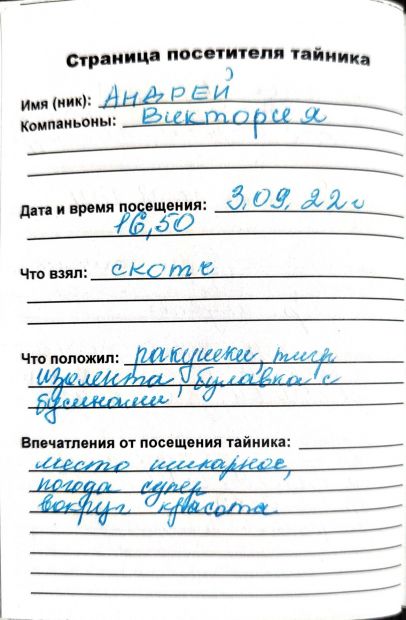 Страница посетителя тайника
Имя (ник): АНДРЕЙ
Компаньоны: Виктория
Дата и время посещения: 3.09.22г
16,50
Что взял: скотч
Что положил: ракушки, тигр
изолента, булавка с
бусинами
Впечатления от посещения тайника:
место шикарное,
погода супер
вокруг красота